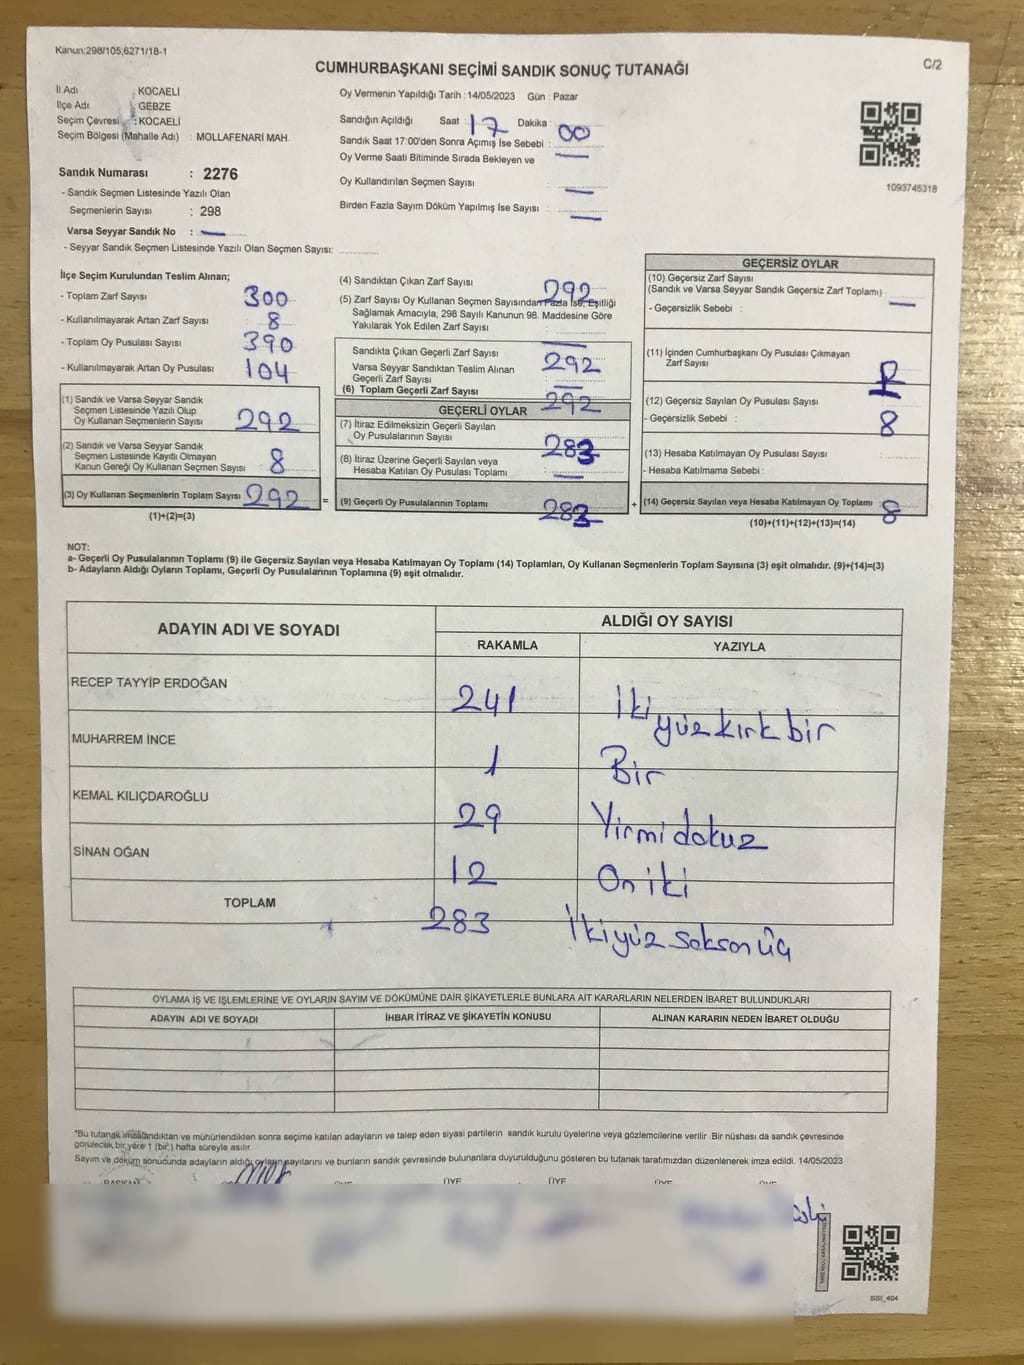 Kanun:298/105,6271/18-1
C/2
CUMHURBAŞKANI SEÇİMİ SANDIK SONUÇ TUTANAĞI
İl Adı : KOCAELİ
İlçe Adı : GEBZE
Seçim Çevresi : KOCAELİ
Seçim Bölgesi (Mahalle Adı) : MOLLAFENARİ MAH.
Sandık Numarası : 2276
- Sandık Seçmen Listesinde Yazılı Olan
Seçmenlerin Sayısı : 298
Varsa Seyyar Sandık No : —
- Seyyar Sandık Seçmen Listesinde Yazılı Olan Seçmen Sayısı:
Oy Vermenin Yapıldığı Tarih : 14/05/2023 Gün : Pazar
Sandığın Açıldığı Saat : 17 Dakika : 00
Sandık Saat 17:00'den Sonra Açımış İse Sebebi : —
Oy Verme Saati Bitiminde Sırada Bekleyen ve
Oy Kullandırılan Seçmen Sayısı : —
Birden Fazla Sayım Döküm Yapılmış İse Sayısı : —
1093745318
İlçe Seçim Kurulundan Teslim Alınan;
- Toplam Zarf Sayısı 300
- Kullanılmayarak Artan Zarf Sayısı 8
- Toplam Oy Pusulası Sayısı 390
- Kullanılmayarak Artan Oy Pusulası 104
(1) Sandık ve Varsa Seyyar Sandık
Seçmen Listesinde Yazılı Olup
Oy Kullanan Seçmenlerin Sayısı 292
(2) Sandık ve Varsa Seyyar Sandık
Seçmen Listesinde Kayıtlı Olmayan
Kanun Gereği Oy Kullanan Seçmen Sayısı 8
(3) Oy Kullanan Seçmenlerin Toplam Sayısı 292
(1)+(2)=(3)
(4) Sandıktan Çıkan Zarf Sayısı 292
(5) Zarf Sayısı Oy Kullanan Seçmen Sayısından Fazla İse, Eşitliği
Sağlamak Amacıyla, 298 Sayılı Kanunun 98. Maddesine Göre
Yakılarak Yok Edilen Zarf Sayısı : —
Sandıkta Çıkan Geçerli Zarf Sayısı 292
Varsa Seyyar Sandıktan Teslim Alınan
Geçerli Zarf Sayısı —
(6) Toplam Geçerli Zarf Sayısı 292
GEÇERLİ OYLAR
(7) İtiraz Edilmeksizin Geçerli Sayılan
Oy Pusulalarının Sayısı 283
(8) İtiraz Üzerine Geçerli Sayılan veya
Hesaba Katılan Oy Pusulası Toplamı —
=
(9) Geçerli Oy Pusulalarının Toplamı 283
+
GEÇERSİZ OYLAR
(10) Geçersiz Zarf Sayısı
(Sandık ve Varsa Seyyar Sandık Geçersiz Zarf Toplamı) —
- Geçersizlik Sebebi :
(11) İçinden Cumhurbaşkanı Oy Pusulası Çıkmayan
Zarf Sayısı
(12) Geçersiz Sayılan Oy Pusulası Sayısı 8
- Geçersizlik Sebebi :
(13) Hesaba Katılmayan Oy Pusulası Sayısı
- Hesaba Katılmama Sebebi :
(14) Geçersiz Sayılan veya Hesaba Katılmayan Oy Toplamı : 8
(10)+(11)+(12)+(13)=(14)
NOT:
a- Geçerli Oy Pusulalarının Toplamı (9) ile Geçersiz Sayılan veya Hesaba Katılmayan Oy Toplamı (14) Toplamları, Oy Kullanan Seçmenlerin Toplam Sayısına (3) eşit olmalıdır. (9)+(14)=(3)
b- Adayların Aldığı Oyların Toplamı, Geçerli Oy Pusulalarının Toplamına (9) eşit olmalıdır.
ADAYIN ADI VE SOYADI ALDIĞI OY SAYISI
RAKAMLA YAZIYLA
RECEP TAYYİP ERDOĞAN 241 İki yüz kırk bir
MUHARREM İNCE 1 Bir
KEMAL KILIÇDAROĞLU 29 Yirmi dokuz
SİNAN OĞAN 12 On iki
TOPLAM 283 İki yüz sekson üç
OYLAMA İŞ VE İŞLEMLERİNE VE OYLARIN SAYIM VE DÖKÜMÜNE DAİR ŞİKAYETLERLE BUNLARA AİT KARARLARIN NELERDEN İBARET BULUNDUKLARI
ADAYIN ADI VE SOYADI İHBAR İTİRAZ VE ŞİKAYETİN KONUSU ALINAN KARARIN NEDEN İBARET OLDUĞU
*Bu tutanak imzalandıktan ve mühürlendikten sonra seçime katılan adayların ve talep eden siyasi partilerin sandık kurulu üyelerine veya gözlemcilerine verilir .Bir nüshası da sandık çevresinde
görülecek bir yere 1 (bir ) hafta süreyle asılır.
Sayım ve döküm sonucunda adayların aldığı oyların sayılarını ve bunların sandık çevresinde bulunanlara duyurulduğunu gösteren bu tutanak tarafımızdan düzenlenerek imza edildi. 14/05/2023
BAŞKAN ÜYE ÜYE ÜYE ÜYE
SSI_404